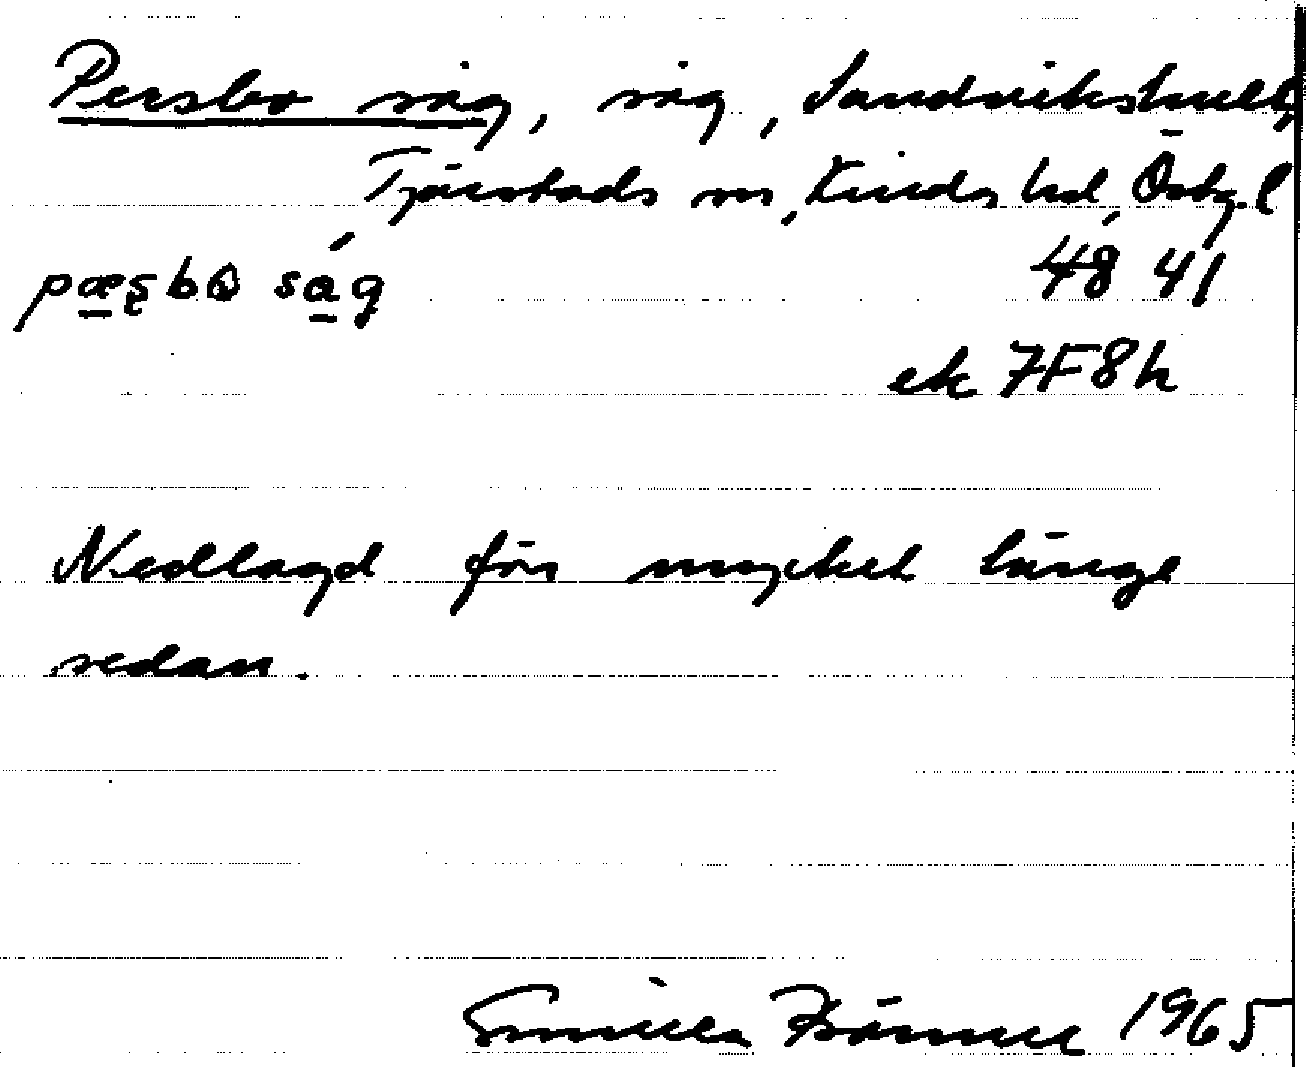 Persbo såg, såg, Sandvikshult,
Tjärstads sn, Kinds hd, Östg. l
pæsbo såg 48 41
ek 7F8h
Nedlagd för mycket länge
sedan.
Gunilla 1965